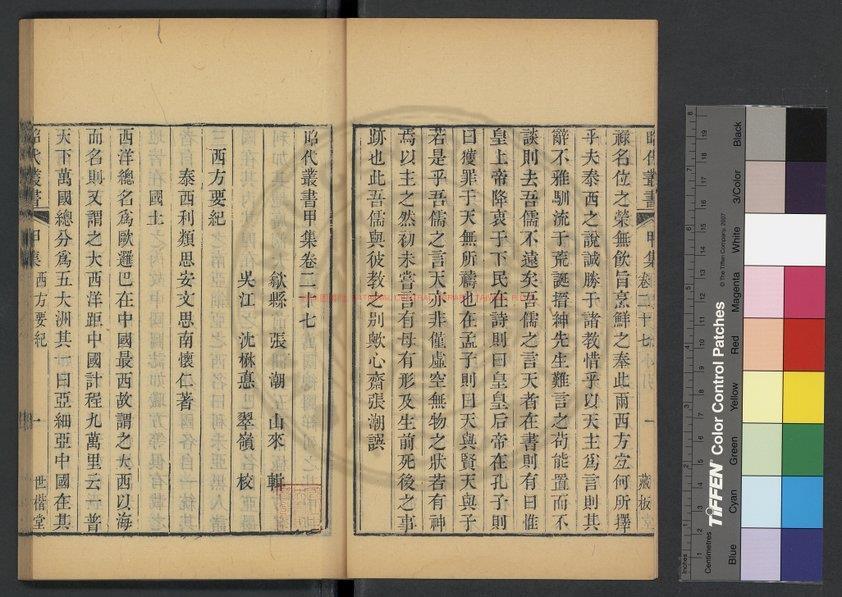 祿名位之榮無飲旨烹鮮之奉此兩西方宜何所擇
乎夫泰西之說誠勝于諸教惜乎以天主為言則其
辭不雅馴流于荒誕搢紳先生難言之苟能置而不
談則去吾儒不遠矣吾儒之言天者在書則有曰惟
皇上帝降衷于下民在詩則曰皇皇后帝在孔子則
曰獲罪于天無所禱也在孟子則曰天與賢天與子
若是乎吾儒之言天亦非僅虛空無物之狀若有神
焉以主之然初未嘗言有母有形及生前死後之事
跡也此吾儒與彼教之别歟心齋張潮譔
昭代叢書甲集卷二十七
歙縣 張潮 山來 輯
吳江 沈楙惪 翠嶺 校
西方要紀
泰西利類思安文思南懷仁著
國土
西洋總名為歐邏巴在中國最西故謂之大西以海
而名則又謂之大西洋距中國計程九萬里云一普
天下萬國總分為五大洲其一曰亞細亞中國在其
昭代叢書 甲集 西方要紀 一 世楷堂
昭代叢書 甲集 卷二十七 一 藏板
Inches
Centimetres
TIFFEN Color Control Patches
© The Tiffen Company, 2007
Blue
Cyan
Green
Yellow
Red
Magenta
White
3/Color
Black